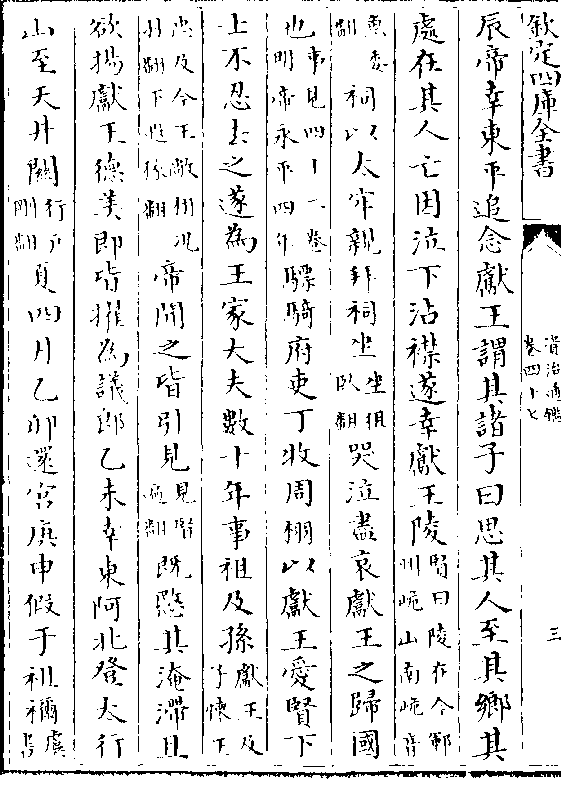 欽定四庫全書
資治通鑑
卷四十七
三
辰帝幸東平追念獻王謂其諸子曰思其人至其鄉其
處在其人亡因泣下沾襟遂幸獻王陵賢曰陵在今鄆州峗山南峗音
魚委翻祠以太牢親拜祠坐坐徂臥翻哭泣盡哀獻王之歸國
也事見四十一卷明帝永平四年驃騎府吏丁牧周栩以獻王愛賢下
士不忍去之遂為王家大夫數十年事祖及孫獻王及子懷王
忠及今王敞栩況羽翻下遐稼翻帝聞之皆引見見賢遍翻既愍其淹滯且
欲揚獻王德美即皆擢為議郎乙未幸東阿北登太行
山至天井關行戶剛翻夏四月乙卯還宮庚申假于祖禰虞書